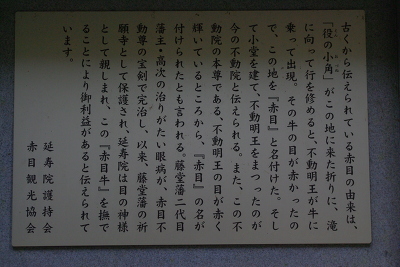 古くから伝えられている赤目の由来は、
「役の小角」がこの地に来た折りに、滝
に向って行を修めると、不動明王が牛に
乗って出現。その牛の目が赤かったの
で、この地を『赤目』と名付けた。そし
て小堂を建て、不動明王をまつったのが
今の不動院と伝えられる。また、この不
動院の本尊である、不動明王の目が赤く
輝いているところから、『赤目』の名が
付けられたとも言われる。藤堂藩二代目
藩主・高次の治りがたい眼病が、赤目不
動尊の宝剣で完治し、以来、藤堂藩の祈
願寺として保護され、延寿院は目の神様
として親しまれ、この『赤目牛』を撫で
ることにより御利益があると伝えられて
います。
延寿院護持会
赤目観光協会